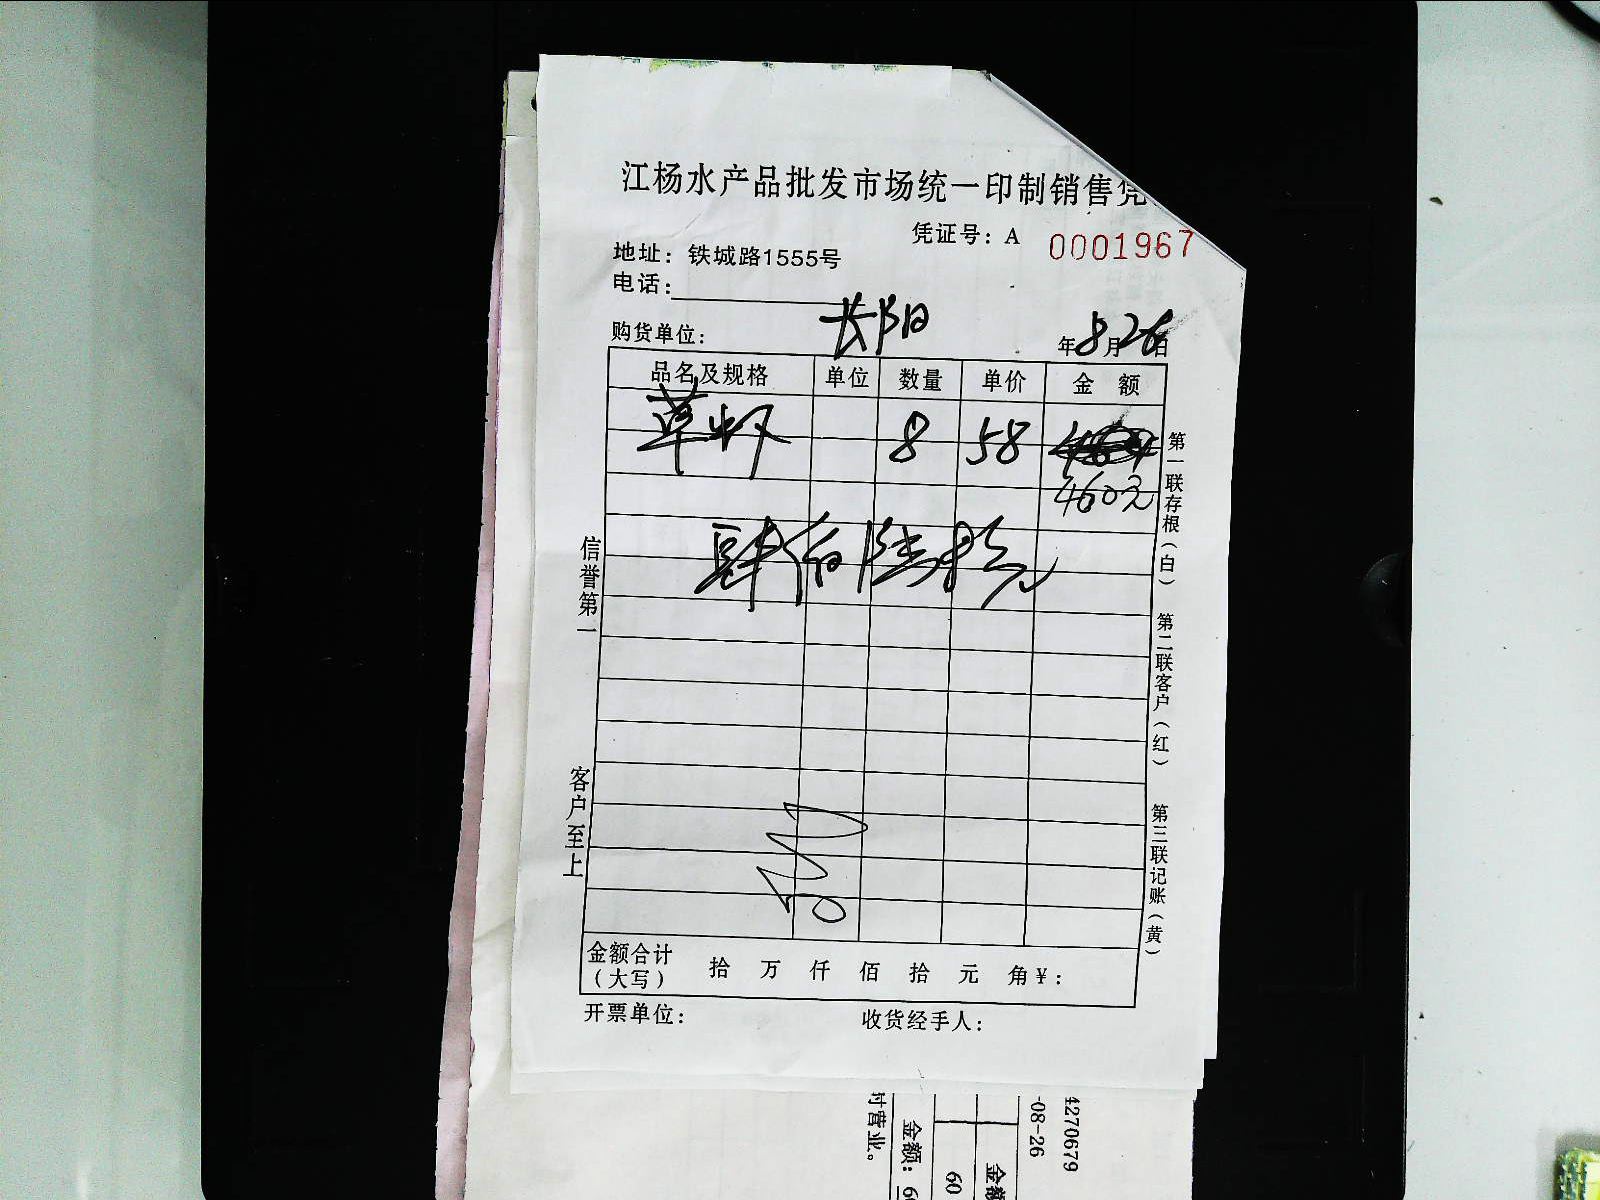 江杨水产品批发市场统一印制销售凭
凭证号：A 0001967
地址：铁城路1555号
电话：
购货单位： 长阳 年8月26日
品名及规格 单位 数量 单价 金 额
草虾 8 58
460元
肆佰陆拾元
信誉第一
客户至上
第一联存根（白）
第二联客户（红）
第三联记账（黄）
金额合计（大写） 拾 万 仟 佰 拾 元 角 ¥：
开票单位： 收货经手人：
4270679
-08-26
金额：
60
营业。